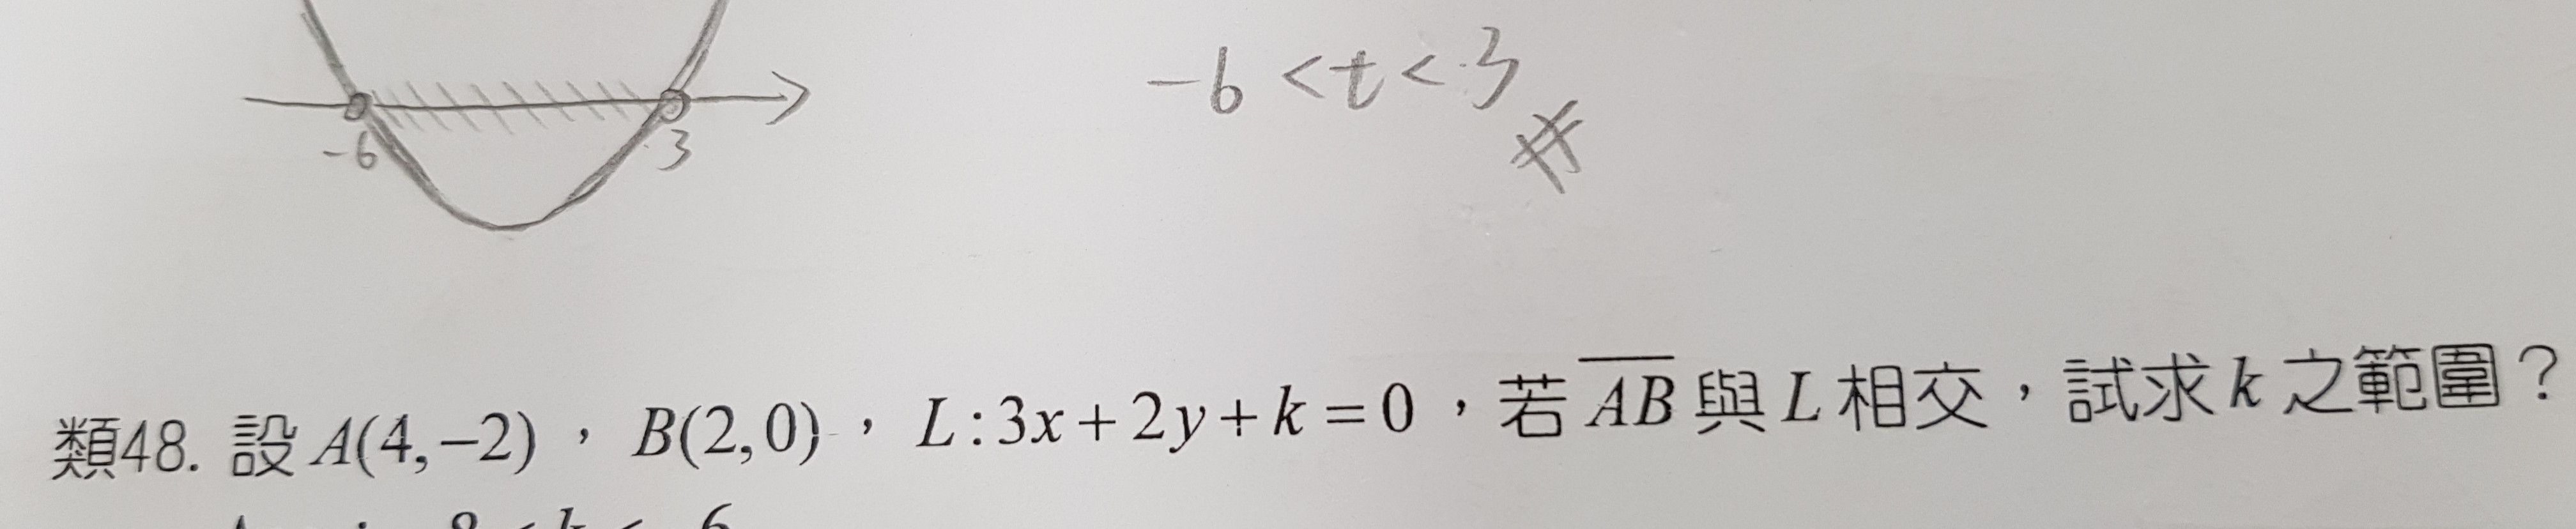 -6 < t < 3
-6 3
類48. 設 A(4,−2)，B(2,0)，L:3x+2y+k=0，若 \overline{AB} 與 L 相交，試求 k 之範圍？